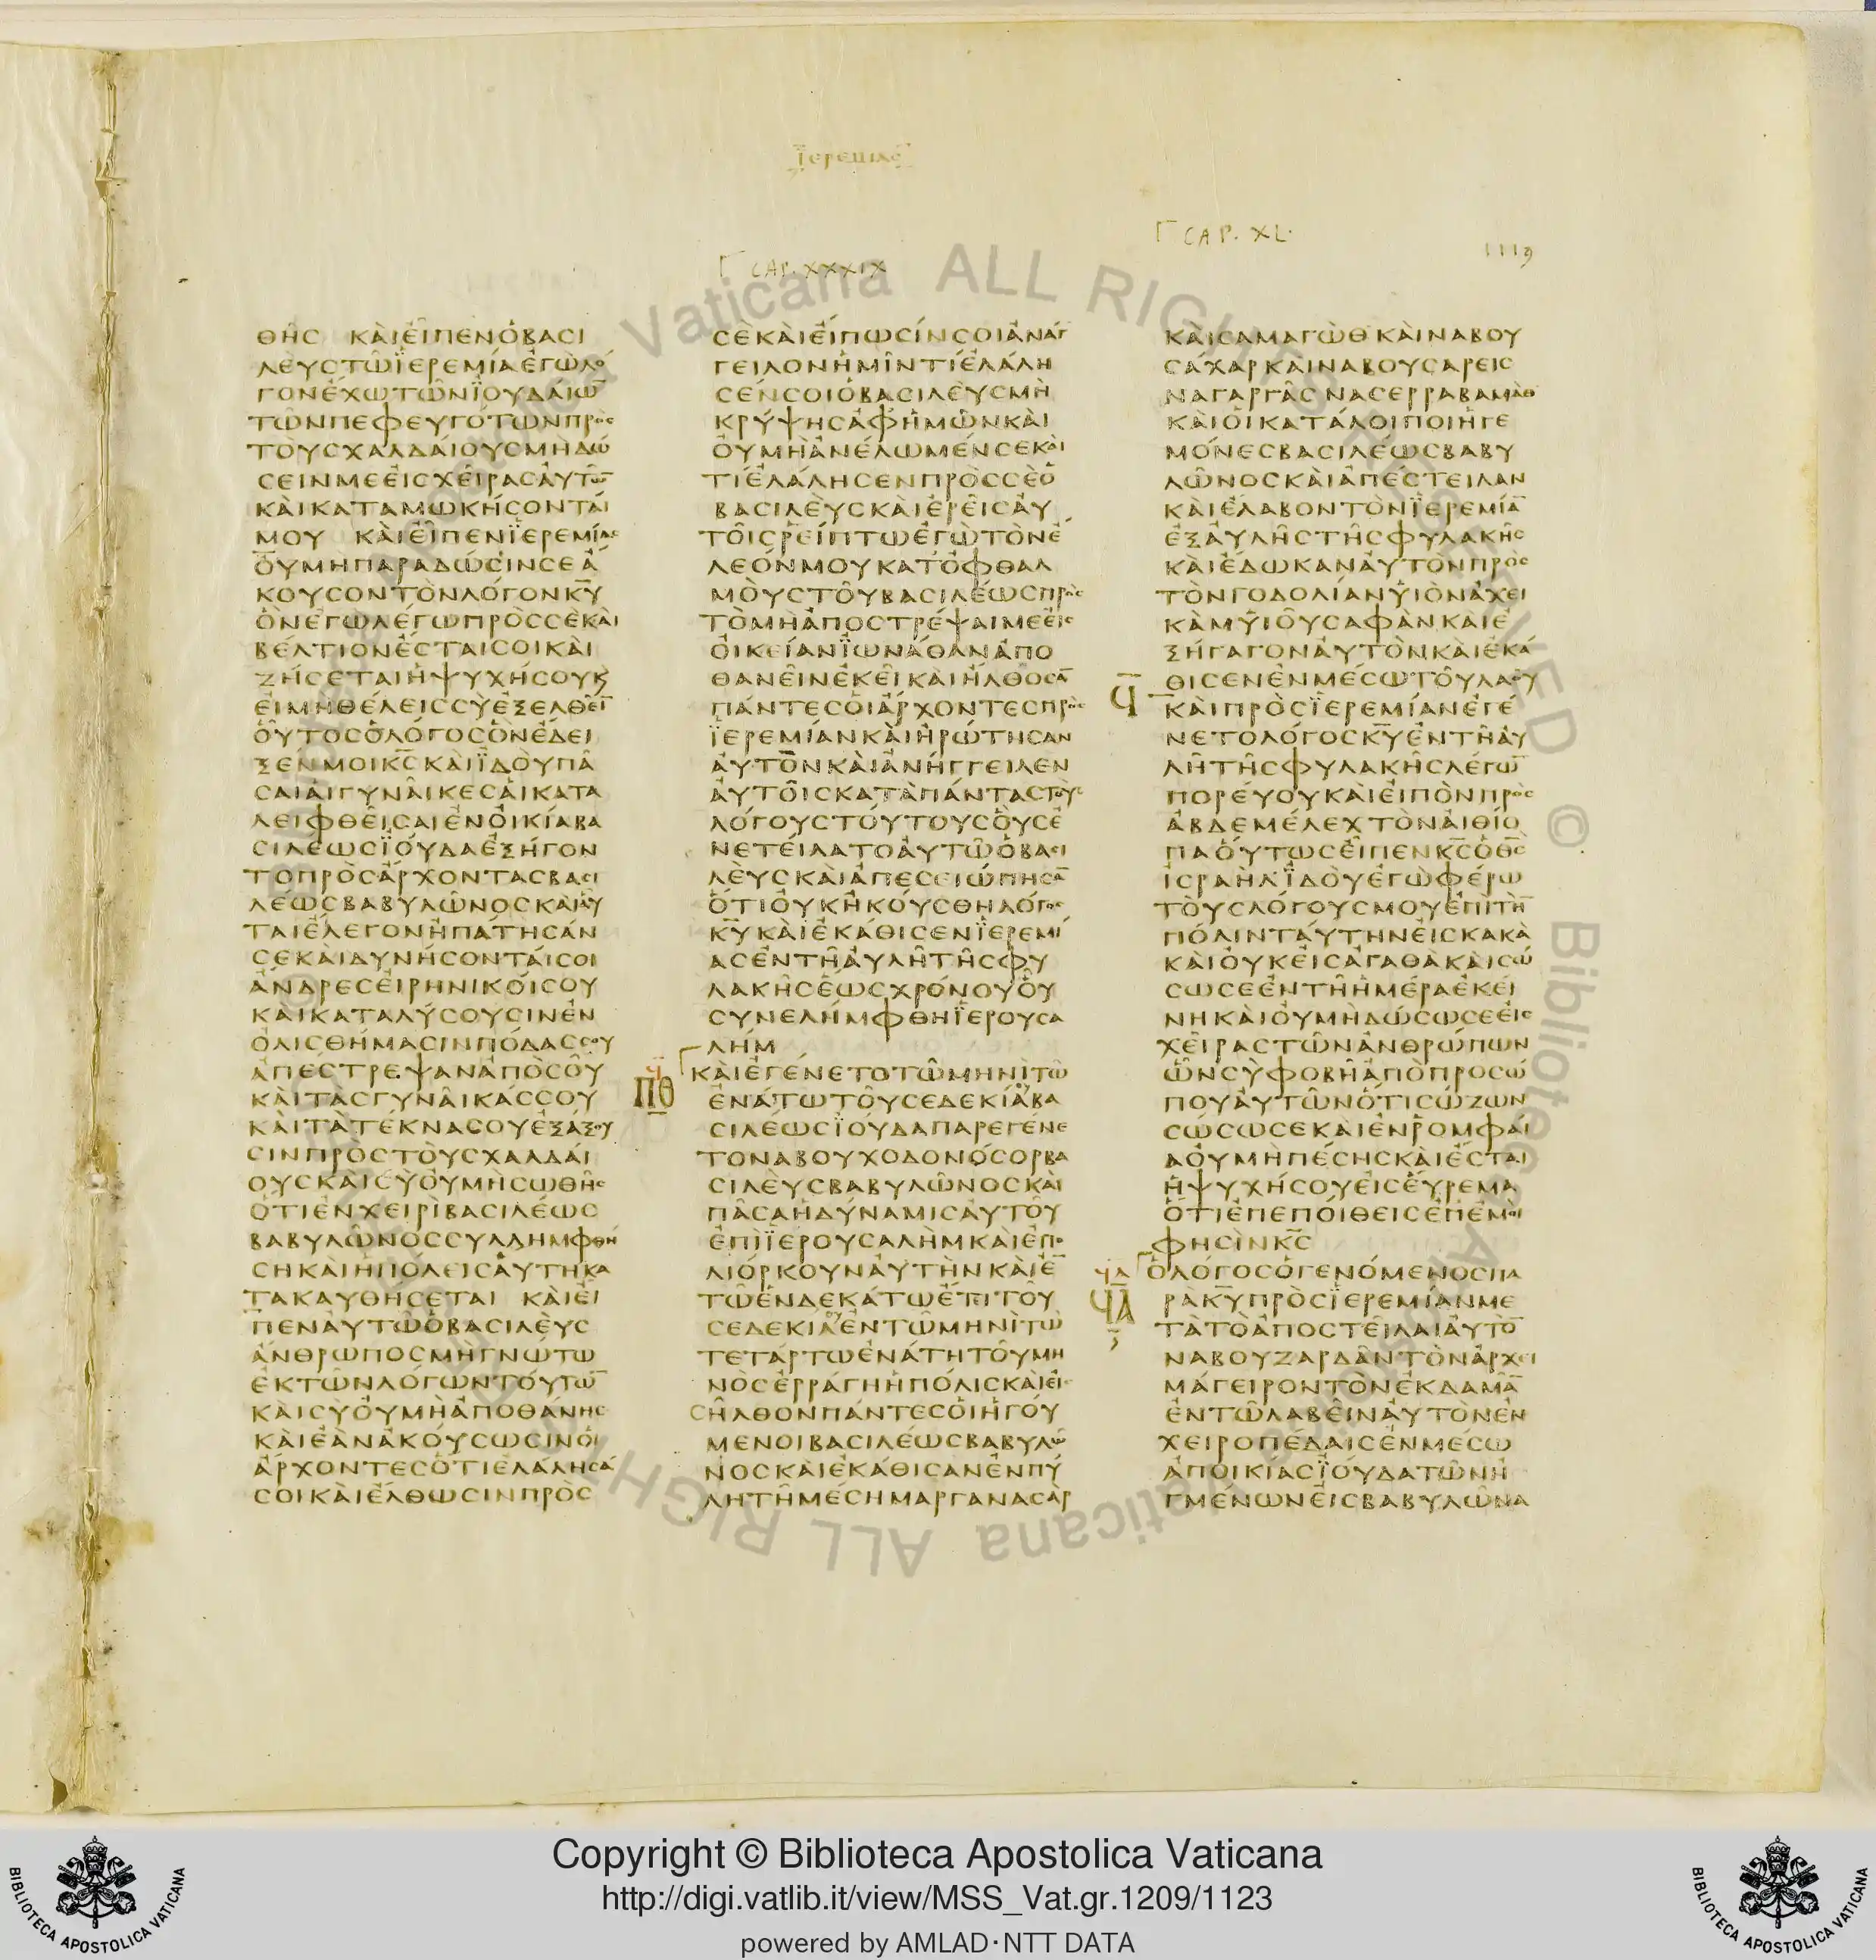 ϊερεμιας
Γ CAP. XXXIX
Γ CAP. XL.
1119
ΘΗ͂Ϲ ΚΑῚΕἾΠΕΝὉΒΑϹΙ
ΛΕῪϹΤΩ͂ΪΕΡΕΜΊΑΕΓῺΛΟ
ΓΟΝΈΧΩΤΩ͂ΝΪΟΥΔΑΊΩ̅
ΤΩ͂ΝΠΕΦΕΥΓΌΤΩΝΠΡῸϹ
ΤΟῪϹΧΑΛΔΑΊΟΥϹΜῊΔΩ
ϹΕΙΝΜΕΕἸϹΧΕῖΡΑϹΑΥΤΩ̅
ΚΑῚΚΑΤΑΜΩΚΉϹΟΝΤΑΊ
ΜΟΥ ΚΑῚΕἾΠΕΝΪΕΡΕΜΊΑϹ
ΟΥΜΗΠΑΡΑΔΩϹΙΝϹΕΑ
ΚΟΥϹΟΝΤῸΝΛΌΓΟΝΚ̅Υ̅
ὋΝΕΓῺΛΈΓΩΠΡῸϹϹῈΚΑῚ
ΒΈΛΤΙΟΝΕϹΤΑΙϹΟΙΚΑῚ
ΖΉϹΕΤΑΙἩΨΥΧΉϹΟΥΚ
ΕἸΜΗΘΈΛΕΙϹϹῪΕΞΕΛΘΕΙ̅
ΟὟΤΟϹὉΛΌΓΟϹὋΝΈΔΕΙ
ΞΕΝΜΟΙΚ̅Ϲ̅ΚΑῚΪΔΟῪΠΑ
ϹΑΙΑἹΓΥΝΑῖΚΕϹΑἹΚΑΤΑ
ΛΕΙΦΘΕῖϹΑΙΕΝΟΙΚΊΑΒΑ
ϹΙΛΈΩϹΪΟΎΔΑΕΞΉΓΟΝ
ΤΟΠΡῸϹΆΡΧΟΝΤΑϹΒΑϹΙ
ΛΈΩϹΒΑΒΥΛΩ͂ΝΟϹΚΑῚΑΥ
ΤΑΙΈΛΕΓΟΝΗΠΆΤΗϹΑΝ
ϹΕΚΑῚΔΥΝΉϹΟΝΤΑΊϹΟΙ
ΆΝΔΡΕϹΕΙΡΗΝΙΚΟΊϹΟΥ
ΚΑῚΚΑΤΑΛΎϹΟΥϹΙΝΕΝ
ΟΛΙϹΘΉΜΑϹΙΝΠΌΔΑϹϹΟΥ
ΑΠΈϹΤΡΕΨΑΝΑΠῸϹΟΥ͂
ΚΑῚΤᾺϹΓΥΝΑῖΚΆϹϹΟΥ
ΚΑῚΤᾺΤΈΚΝΑϹΟΥΕΞΆΞΟΥ
ϹΙΝΠΡῸϹΤΟῪϹΧΑΛΔΑΊ
ΟΥϹΚΑῚϹῪΟΥΜΗϹΩΘΗ͂Ϲ
ὍΤΙΕΝΧΕΙΡῚΒΑϹΙΛΈΩϹ
ΒΑΒΥΛΩ͂ΝΟϹϹΥΛΛΗΜΦΘΗ
ϹΗΚΑῚΗΠΌΛΕΙϹΑΥΤΗΚΑ
ΤΑΚΑΥΘΗϹΕΤΑΙ ΚΑῚΕΙ
ΠΕΝΑΥΤΩ͂ὉΒΑϹΙΛΕῪϹ
ΆΝΘΡΩΠΟϹΜῊΓΝΩΤΩ
ΕΚΤΩ͂ΝΛΌΓΩΝΤΟΎΤΩ̅
ΚΑῚϹῪΟΥΜῊΑΠΟΘΆΝΗϹ
ΚΑῚΕᾺΝΑΚΟΎϹΩϹΙΝΟἹ
ΆΡΧΟΝΤΕϹὍΤΙΕΛΆΛΗϹΆ
ϹΟΙΚΑῚΈΛΘΩϹΙΝΠΡῸϹ
ϹῈΚΑῚΕΊΠΩϹΊΝϹΟΙΑΝΆΓ
ΓΕΙΛΟΝΗΜῖΝΤΊΕΛΆΛΗ
ϹΈΝϹΟΙὉΒΑϹΙΛΕῪϹΜῊ
ΚΡΎΨΗϹΑΦΗΜΩ͂ΝΚΑῚ
ΟΥΜῊΑΝΈΛΩΜΈΝϹΕΚΑῚ
ΤΊΕΛΆΛΗϹΕΝΠΡῸϹϹῈὉ
ΒΑϹΙΛΕῪϹΚΑῚΕΡΕῖϹΑΥ
ΤΟῖϹΡΕΙΠΤΩΕΓῺΤῸΝΕ
ΛΕΌΝΜΟΥΚΑΤΟΦΘΑΛ
ΜΟῪϹΤΟΥ͂ΒΑϹΙΛΈΩϹΠΡῸϹ
ΤῸΜῊΑΠΟϹΤΡΈΨΑΙΜΕΕΙϹ
ΟΙΚΕΊΑΝΪΩΝΑΘΑΝΑΠΟ
ΘΑΝΕῖΝΕΚΕῖΚΑῚΉΛΘΟϹΑ̅
ΠΆΝΤΕϹΟἹΆΡΧΟΝΤΕϹΠΡῸϹ
ΪΕΡΕΜΊΑΝΚΑῚΗΡΏΤΗϹΑΝ
ΑΥΤῸΝΚΑῚΑΝΉΓΓΕΙΛΕΝ
ΑΥΤΟῖϹΚΑΤᾺΠΆΝΤΑϹΤΟΥϹ
ΛΌΓΟΥϹΤΟΎΤΟΥϹΟὛϹΕ
ΝΕΤΕΊΛΑΤΟΑΥΤΩ͂ὉΒΑϹΙ
ΛΕῪϹΚΑῚΑΠΕϹΕΙΏΠΗϹΑ̅
ὍΤΙΟΥΚΗΚΟΎϹΘΗΛΌΓΟϹ
Κ̅Υ̅ΚΑῚΕΚΆΘΙϹΕΝΪΕΡΕΜΊ
ΑϹΕΝΤΗ͂ΑΥΛΗ͂ΤΗ͂ϹΦΥ
ΛΑΚΗϹΈΩϹΧΡΌΝΟΥΟὟ
ϹΥΝΕΛΉΜΦΘΗΪΕΡΟΥϹΑ
ΛΉΜ
ΠΘ
ΚΑῚΕΓΈΝΕΤΟΤΩ͂ΜΗΝῚΤΩ
ΕΝΆΤΩΤΟΥ͂ϹΕΔΕΚΊΑΒΑ
ϹΙΛΈΩϹΪΟΎΔΑΠΑΡΕΓΈΝΕ
ΤΟΝΑΒΟΥΧΟΔΟΝΌϹΟΡΒΑ
ϹΙΛΕῪϹΒΑΒΥΛΩ͂ΝΟϹΚΑῚ
ΠΑ͂ϹΑἩΔΎΝΑΜΙϹΑΥΤΟΥ͂
ΕΠῚΪΕΡΟΥϹΑΛῊΜΚΑῚΕΠΟ
ΛΙΌΡΚΟΥΝΑΥΤῊΝΚΑῚΕ̅
ΤΩ͂ΕΝΔΕΚΆΤΩΈΤΙΤΟΥ
ϹΕΔΕΚΙΑΕΝΤΩ͂ΜΗΝῚΤΩ
ΤΕΤΆΡΤΩΕΝΆΤΗΤΟΥ͂ΜΗ
ΝῸϹΕΡΡΆΓΗἩΠΌΛΙϹΚΑῚΕΙ
ϹΗ͂ΛΘΟΝΠΆΝΤΕϹΟἹΗΓΟΎ
ΜΕΝΟΙΒΑϹΙΛΈΩϹΒΑΒΥΛΩ
ΝΟϹΚΑῚΕΚΆΘΙϹΑΝΕΝΠΎ
ΛΗΤΗ͂ΜΈϹΗΜΑΡΓΑΝΑϹᾺΡ
ΚΑῚϹΑΜΑΓῺΘΚΑῚΝΑΒΟΥ
ϹΆΧΑΡΚΑῚΝΑΒΟΥϹΑΡΕΙϹ
ΝΑΓΑΡΓΑ͂ϹΝΑϹΕΡΡΑΒΑΜᾺΘ
ΚΑῚΟἹΚΑΤΆΛΟΙΠΟΙἩΓΕ
ΜΌΝΕϹΒΑϹΙΛΈΩϹΒΑΒΥ
ΛΩ͂ΝΟϹΚΑῚΑΠΈϹΤΕΙΛΑΝ
ΚΑῚΈΛΑΒΟΝΤῸΝΪΕΡΕΜΊΑ̅
ΕΞΑΥΛΗ͂ϹΤΗ͂ϹΦΥΛΑΚΗ͂Ϲ
ΚΑῚΈΔΩΚΑΝΑΥΤῸΝΠΡῸϹ
ΤῸΝΓΟΔΟΛΊΑΝΥἹῸΝΑΧΕΙ
ΚᾺΜΥἹΟΥ͂ϹΑΦᾺΝΚΑῚΕ
ΞΉΓΑΓΟΝΑΥΤῸΝΚΑῚΕΚΆ
ΘΙϹΕΝΕΝΜΈϹΩΤΟΥ͂ΛΑΟΥ
Ϥ
ΚΑῚΠΡῸϹΪΕΡΕΜΊΑΝΕΓΈ
ΝΕΤΟΛΌΓΟϹΚ̅Υ̅ΕΝΤΗ͂ΑΥ
ΛΗ͂ΤΗ͂ϹΦΥΛΑΚΗ͂ϹΛΈΓΩ̅
ΠΟΡΕΎΟΥΚΑῚΕΙΠῸΝΠΡῸϹ
ΑΒΔΕΜΈΛΕΧΤῸΝΑΙΘΊΟ
ΠΑΟὝΤΩϹΕἾΠΕΝΚ̅Ϲ̅ὉΘ̅Ϲ̅
ΙϹΡΑῊΛΪΔΟῪΕΓῺΦΈΡΩ
ΤΟῪϹΛΌΓΟΥϹΜΟΥΕΠΙΤΗ̅
ΠΌΛΙΝΤΑΎΤΗΝΕΙϹΚΑΚᾺ
ΚΑῚΟΥΚΕΙϹΑΓΑΘᾺΚΑῚϹΩ
ϹΩϹΕΕΝΤΗ͂ἩΜΈΡΑΕΚΕΊ
ΝΗΚΑῚΟΥΜῊΔΏϹΩϹΕΕΙϹ
ΧΕῖΡΑϹΤΩ͂ΝΑΝΘΡΏΠΩΝ
ὯΝϹῪΦΟΒΗ͂ΑΠῸΠΡΟϹΩ
ΠΟΥΑΥΤΩ͂ΝὍΤΙϹΏΖΩΝ
ϹΏϹΩϹΕΚΑῚΕΝΡΟΜΦΑΊ
ΑΟΥΜῊΠΈϹΗϹΚΑῚΈϹΤΑΙ
ἩΨΥΧΉϹΟΥΕΙϹΕὝΡΕΜΑ
ὍΤΙΕΠΕΠΟΊΘΕΙϹΕΠΕΜΟΙ
ΦΗϹῚΝΚ̅Ϲ̅
ϤΑ
ϤΑ
ὉΛΌΓΟϹὉΓΕΝΌΜΕΝΟϹΠΑ
ΡᾺΚ̅Υ̅ΠΡῸϹΪΕΡΕΜΊΑΝΜΕ
ΤᾺΤῸΑΠΟϹΤΕῖΛΑΙΑΥΤῸ̅
ΝΑΒΟΥΖΑΡΔΑ͂ΝΤῸΝΑΡΧΕΙ
ΜΆΓΕΙΡΟΝΤῸΝΕΚΔΑΜΑ̅
ΕΝΤΩ͂ΛΑΒΕῖΝΑΥΤῸΝΕΝ
ΧΕΙΡΟΠΈΔΑΙϹΕΝΜΈϹΩ
ΑΠΟΙΚΊΑϹΪΟΎΔΑΤΩ͂ΝΗ
ΓΜΈΝΩΝΕΙϹΒΑΒΥΛΩ͂ΝΑ
Copyright © Biblioteca Apostolica Vaticana
http://digi.vatlib.it/view/MSS_Vat.gr.1209/1123
powered by AMLAD·NTT DATA